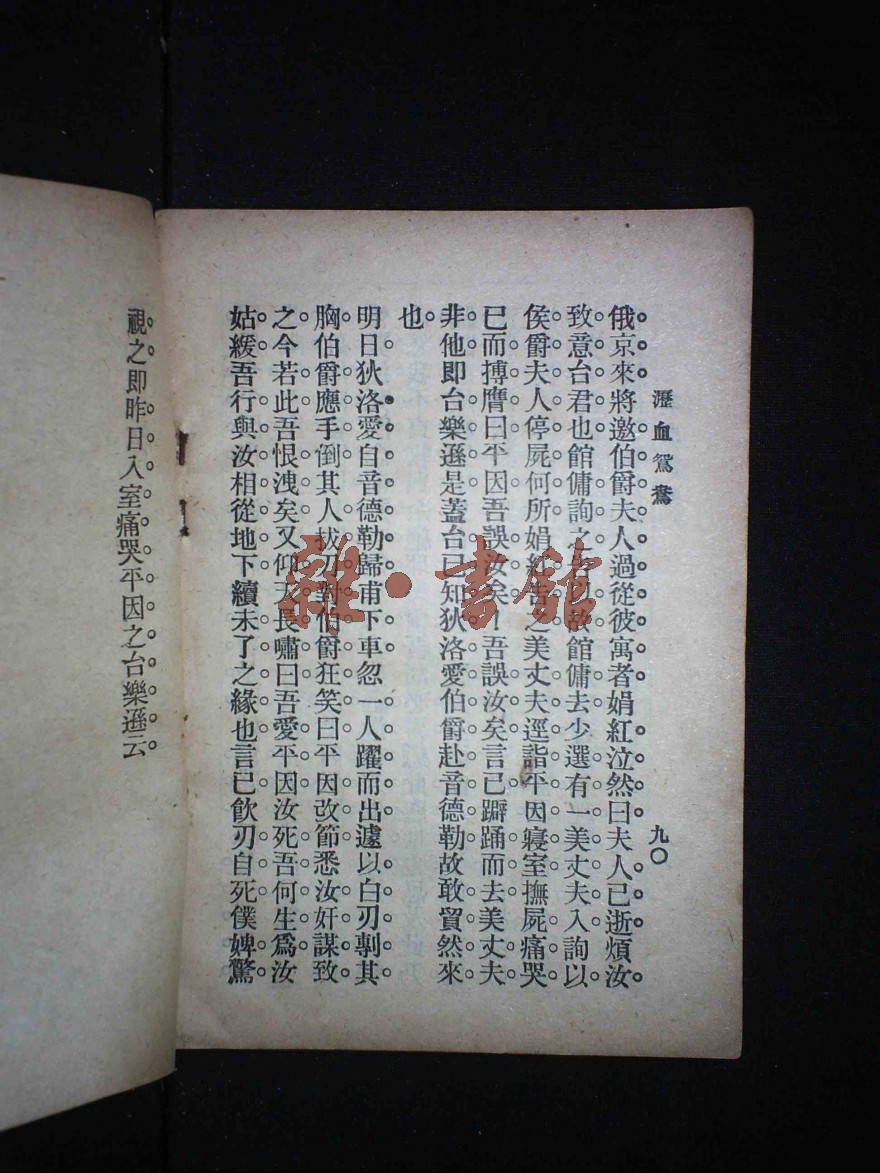 瀝血鴛鴦
九〇
俄京來將邀伯爵夫人過從彼寓者娟紅泣然曰夫人已逝煩汝
致意台君也館傭詢之告以故館傭去少選有一美丈夫入詢以
侯爵夫人停屍何所娟紅告之美丈夫逕詣平因寢室撫屍痛哭
已而搏膺曰平因吾誤汝矣吾誤汝矣言已躃踊而去美丈夫
非他即台樂遜是蓋台已知狄洛愛伯爵赴音德勒故敢貿然來
也
明日狄洛愛自音德勒歸甫下車忽一人躍而出遽以白刃剚其
胸伯爵應手倒其人拔刃對伯爵狂笑曰平因改節悉汝奸謀致
之今若此吾恨洩矣又仰天長嘯曰吾愛平因汝死吾何生爲汝
姑緩吾行與汝相從地下續未了之緣也言已飲刃自死僕婢驚
視之即昨日入室痛哭平因之台樂遜云
雜·書館